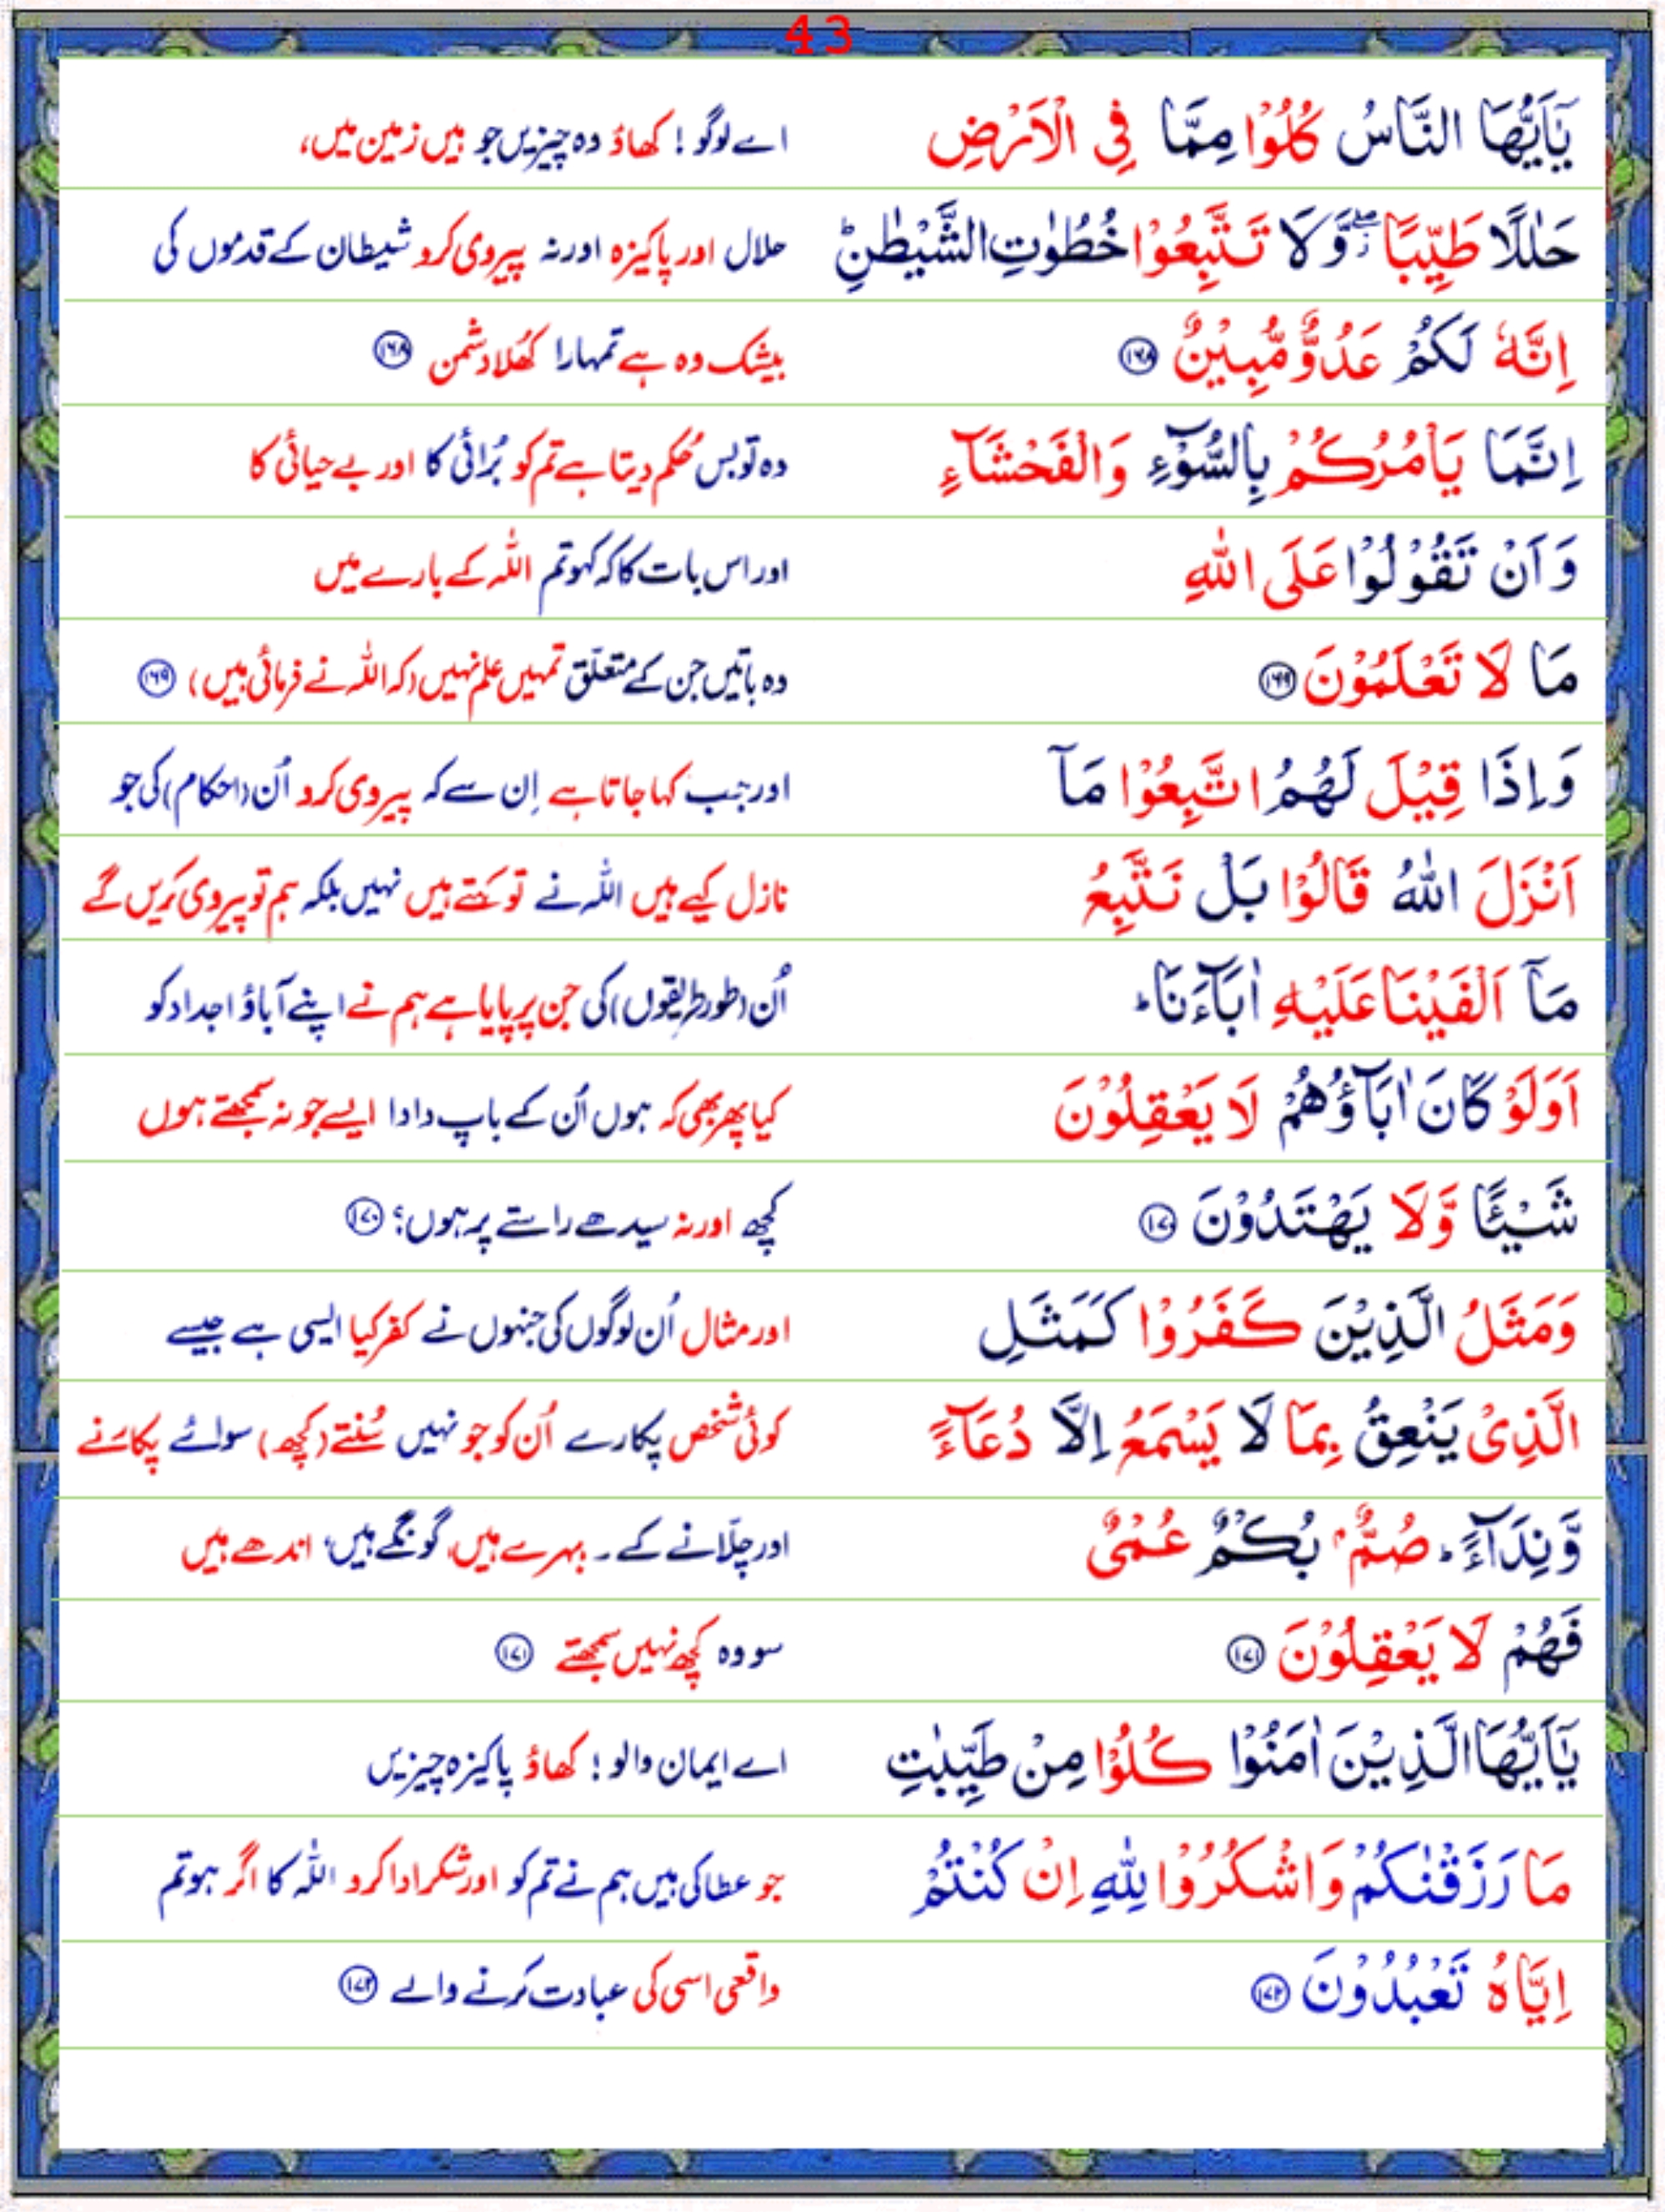 43
يٰٓاَيُّهَا النَّاسُ كُلُوْا مِمَّا فِى الْاَرْضِ اے لوگو ! کھاؤ وہ چیزیں جو ہیں زمین میں،
حَلٰلًا طَيِّبًا ۖ وَّلَا تَتَّبِعُوْا خُطُوٰتِ الشَّيْطٰنِ ؕ حلال اور پاکیزہ اور نہ پیروی کرو شیطان کے قدموں کی
اِنَّهٗ لَكُمْ عَدُوٌّ مُّبِيْنٌ ١٦٨ بیشک وہ ہے تمہارا کھُلا دشمن ١٦٨
اِنَّمَا يَاْمُرُكُمْ بِالسُّوْٓءِ وَالْفَحْشَآءِ وہ تو بس حُکم دیتا ہے تم کو بُرائی کا اور بے حیائی کا
وَاَنْ تَقُوْلُوْا عَلَى اللّٰهِ اور اس بات کا کہ کہو تم اللہ کے بارے میں
مَا لَا تَعْلَمُوْنَ ١٦٩ وہ باتیں جن کے متعلّق تمہیں علم نہیں (کہ اللہ نے فرمائی ہیں) ١٦٩
وَاِذَا قِيْلَ لَهُمُ اتَّبِعُوْا مَآ اور جب کہا جاتا ہے اِن سے کہ پیروی کرو اُن (احکام) کی جو
اَنْزَلَ اللّٰهُ قَالُوْا بَلْ نَتَّبِعُ نازل کیے ہیں اللہ نے تو کہتے ہیں نہیں بلکہ ہم تو پیروی کریں گے
مَآ اَلْفَيْنَا عَلَيْهِ اٰبَآءَنَا ؕ اُن (طور طریقوں) کی جن پر پایا ہے ہم نے اپنے آباؤ اجداد کو
اَوَلَوْ كَانَ اٰبَآؤُهُمْ لَا يَعْقِلُوْنَ کیا پھر بھی کہ ہوں اُن کے باپ دادا ایسے جو نہ سمجھتے ہوں
شَيْـًٔا وَّلَا يَهْتَدُوْنَ ١٧٠ کچھ اور نہ سیدھے راستے پر ہوں؟ ١٧٠
وَمَثَلُ الَّذِيْنَ كَفَرُوْا كَمَثَلِ اور مثال اُن لوگوں کی جنہوں نے کفر کیا ایسی ہے جیسے
الَّذِىْ يَنْعِقُ بِمَا لَا يَسْمَعُ اِلَّا دُعَآءً کوئی شخص پکارے اُن کو جو نہیں سُنتے (کچھ) سوائے پکارنے
وَّنِدَآءً ؕ صُمٌّۢ بُكْمٌ عُمْىٌ اور چلّانے کے۔ بہرے ہیں، گونگے ہیں، اندھے ہیں
فَهُمْ لَا يَعْقِلُوْنَ ١٧١ سو وہ کچھ نہیں سمجھتے ١٧١
يٰٓاَيُّهَا الَّذِيْنَ اٰمَنُوْا كُلُوْا مِنْ طَيِّبٰتِ اے ایمان والو ! کھاؤ پاکیزہ چیزیں
مَا رَزَقْنٰكُمْ وَاشْكُرُوْا لِلّٰهِ اِنْ كُنْتُمْ جو عطا کی ہیں ہم نے تم کو اور شکر ادا کرو اللہ کا اگر ہو تم
اِيَّاهُ تَعْبُدُوْنَ ١٧٢ واقعی اسی کی عبادت کرنے والے ١٧٢